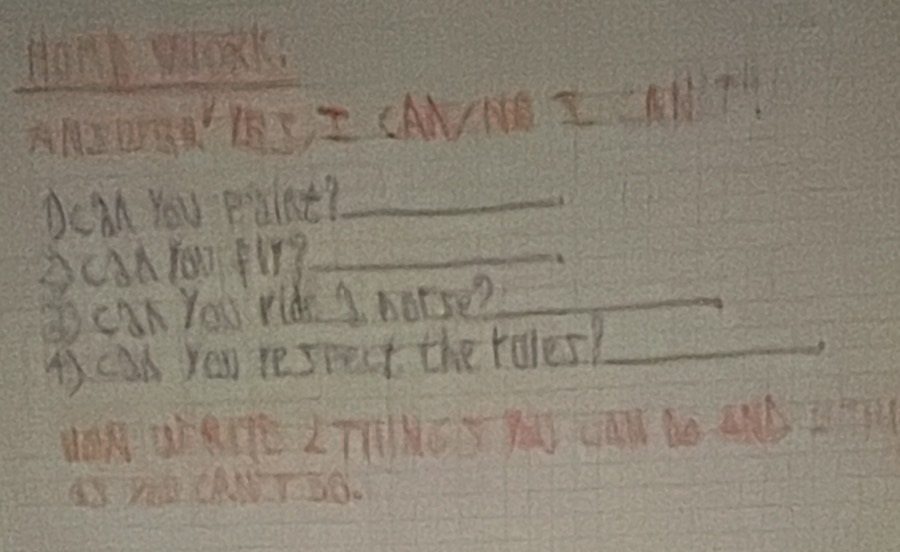 HOME WORK:
ANSWER YES, I CAN/NO I CAN'T!
1) can You paint?
2) can You fly?
3) can You ride a horse?
4) can you respect the rules?
NOW WRITE 2 THINGS YOU CAN DO AND 2 THIN
GS YOU CAN'T DO.